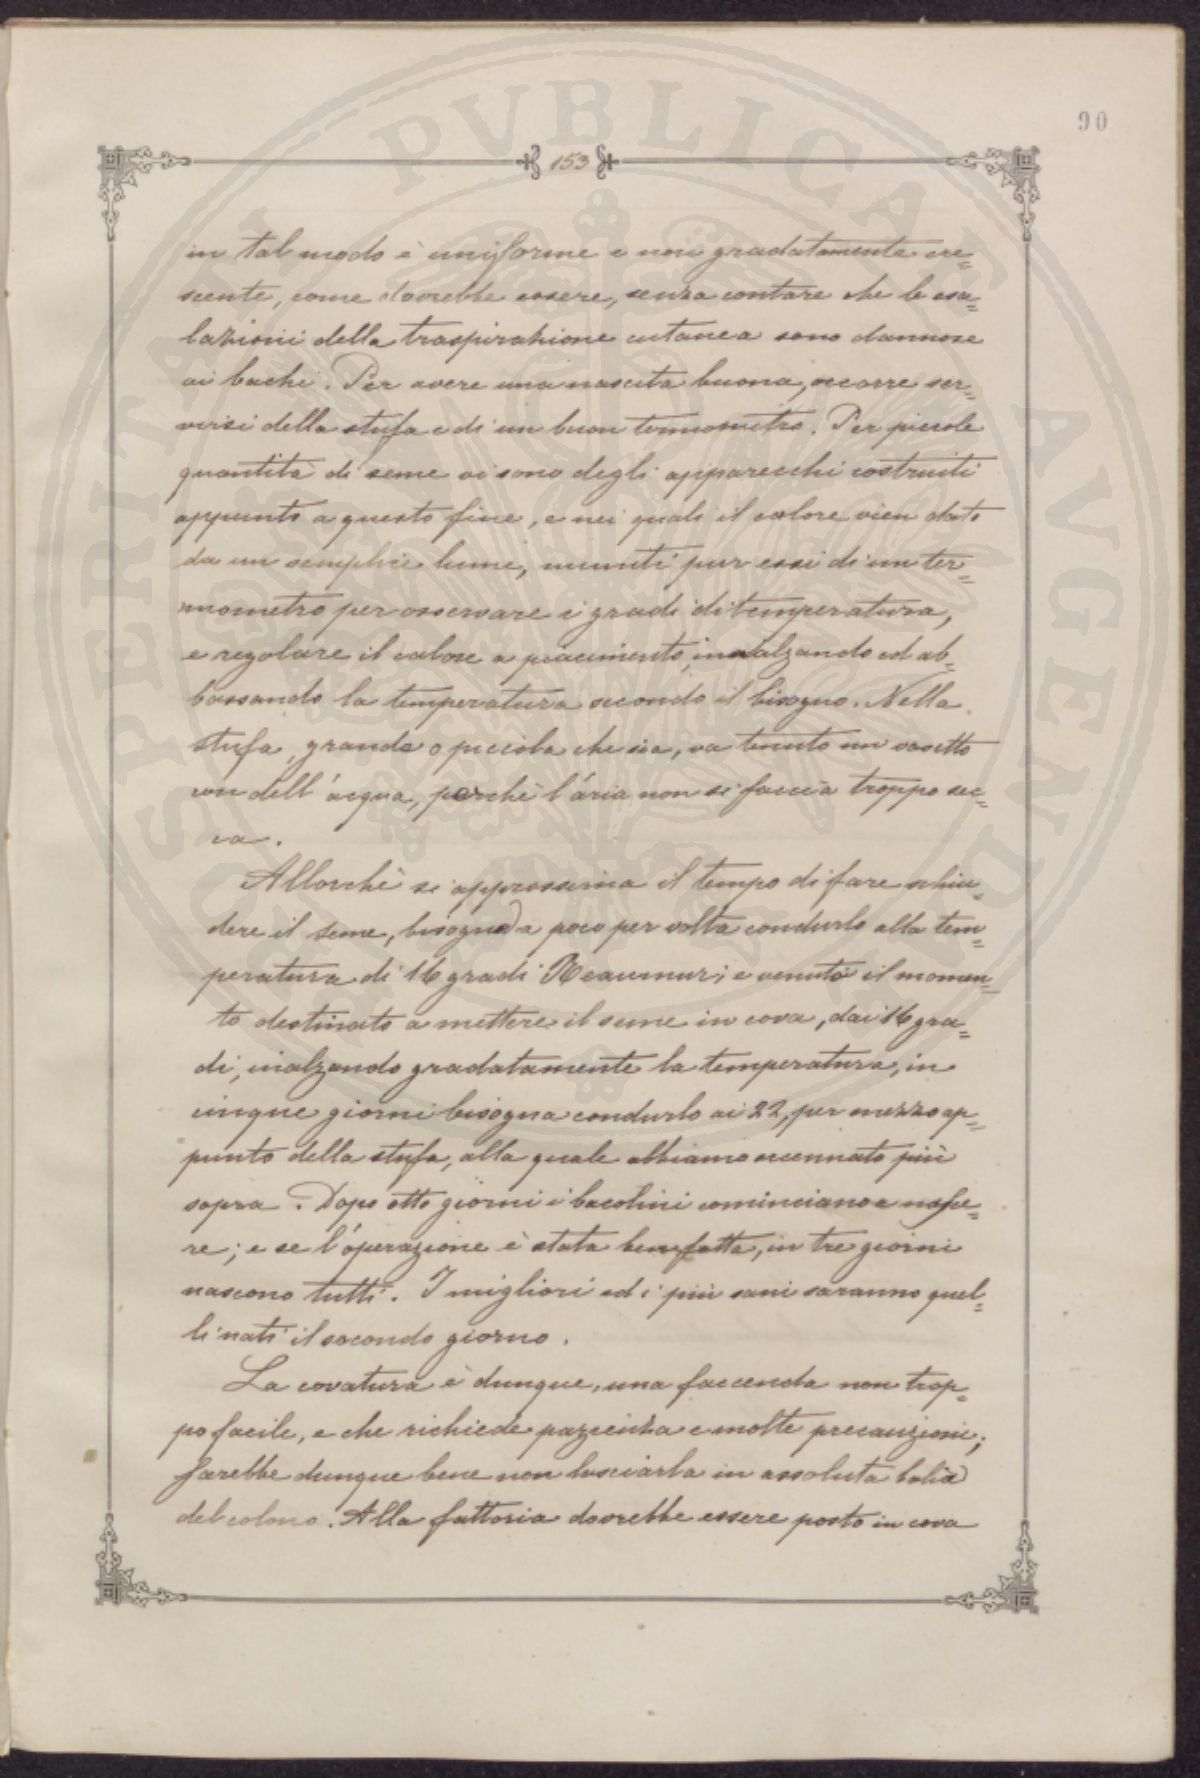 90
153
in tal modo è uniforme e non gradatamente cre=
scente, come dovrebbe essere, senza contare che le esa=
lazioni della traspirazione cutanea sono dannose
ai bachi. Per avere una nascita buona, occorre ser=
virsi della stufa e di un buon termometro. Per piccole
quantità di seme vi sono degli apparecchi costruiti
appunto a questo fine, e nei quali il calore vien dato
da un semplice lume, muniti pur essi di un ter=
mometro per osservare i gradi di temperatura,
e regolare il calore a piacimento, innalzando ed ab=
bassando la temperatura secondo il bisogno. Nella
stufa, grande o piccola che sia, va tenuto un vasetto
con dell'acqua, perchè l'aria non si faccia troppo sec=
ca.
Allorchè si approssima il tempo di fare schiu=
dere il seme, bisogna a poco per volta condurlo alla tem=
peratura di 16 gradi Reaumur; e venuto il momen=
to destinato a mettere il seme in cova, dai 16 gra=
di, inalzando gradatamente la temperatura, in
cinque giorni bisogna condurlo ai 22, per mezzo ap=
punto della stufa, alla quale abbiamo accennato più
sopra. Dopo otto giorni i bacolini cominciano a nasce=
re; e se l'operazione è stata ben fatta, in tre giorni
nascono tutti. I migliori ed i più sani saranno quel=
li nati il secondo giorno.
La covatura è dunque, una faccenda non trop=
po facile, e che richiede pazienza e molte precauzioni;
farebbe dunque bene non lasciarla in assoluta balìa
del colono. Alla fattoria dovrebbe essere posto in cova
PVBLICAE
PROSPERITATI
AVGENDAE